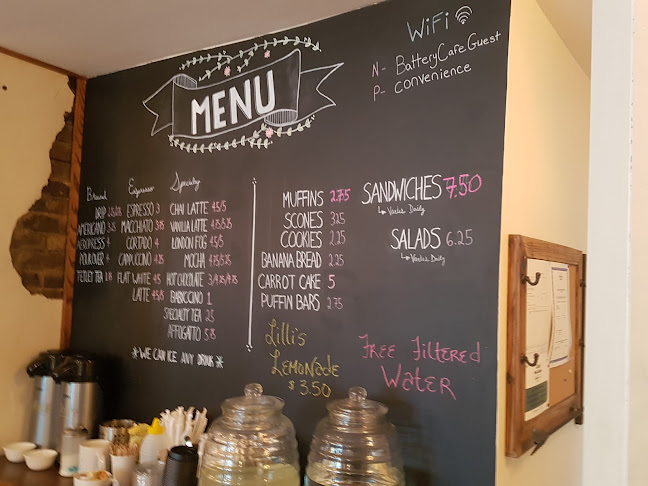 WiFi
N- BatteryCafeGuest
P- convenience
MENU
Brewed
DRIP
AMERICANO
AEROPRESS 4
POUROVER 4
TETLEY TEA
Espresso
ESPRESSO 3
MACCHIATO
CORTADO 4
CAPPUCCINO
FLAT WHITE 4.5
LATTE 4.5/5
Specialty
CHAI LATTE 4.5/5
VANILLA LATTE
LONDON FOG 4.5/5
MOCHA
HOT CHOCOLATE
BABICCINO 1
SPECIALTY TEA 2.5
AFFOGATTO
*WE CAN ICE ANY DRINK*
MUFFINS 2.75
SCONES 3.25
COOKIES 2.25
BANANA BREAD 2.25
CARROT CAKE 5
PUFFIN BARS 2.75
SANDWICHES 7.50
Varies Daily
SALADS 6.25
Varies Daily
Lilli's
Lemonade
$3.50
Free Filtered
Water